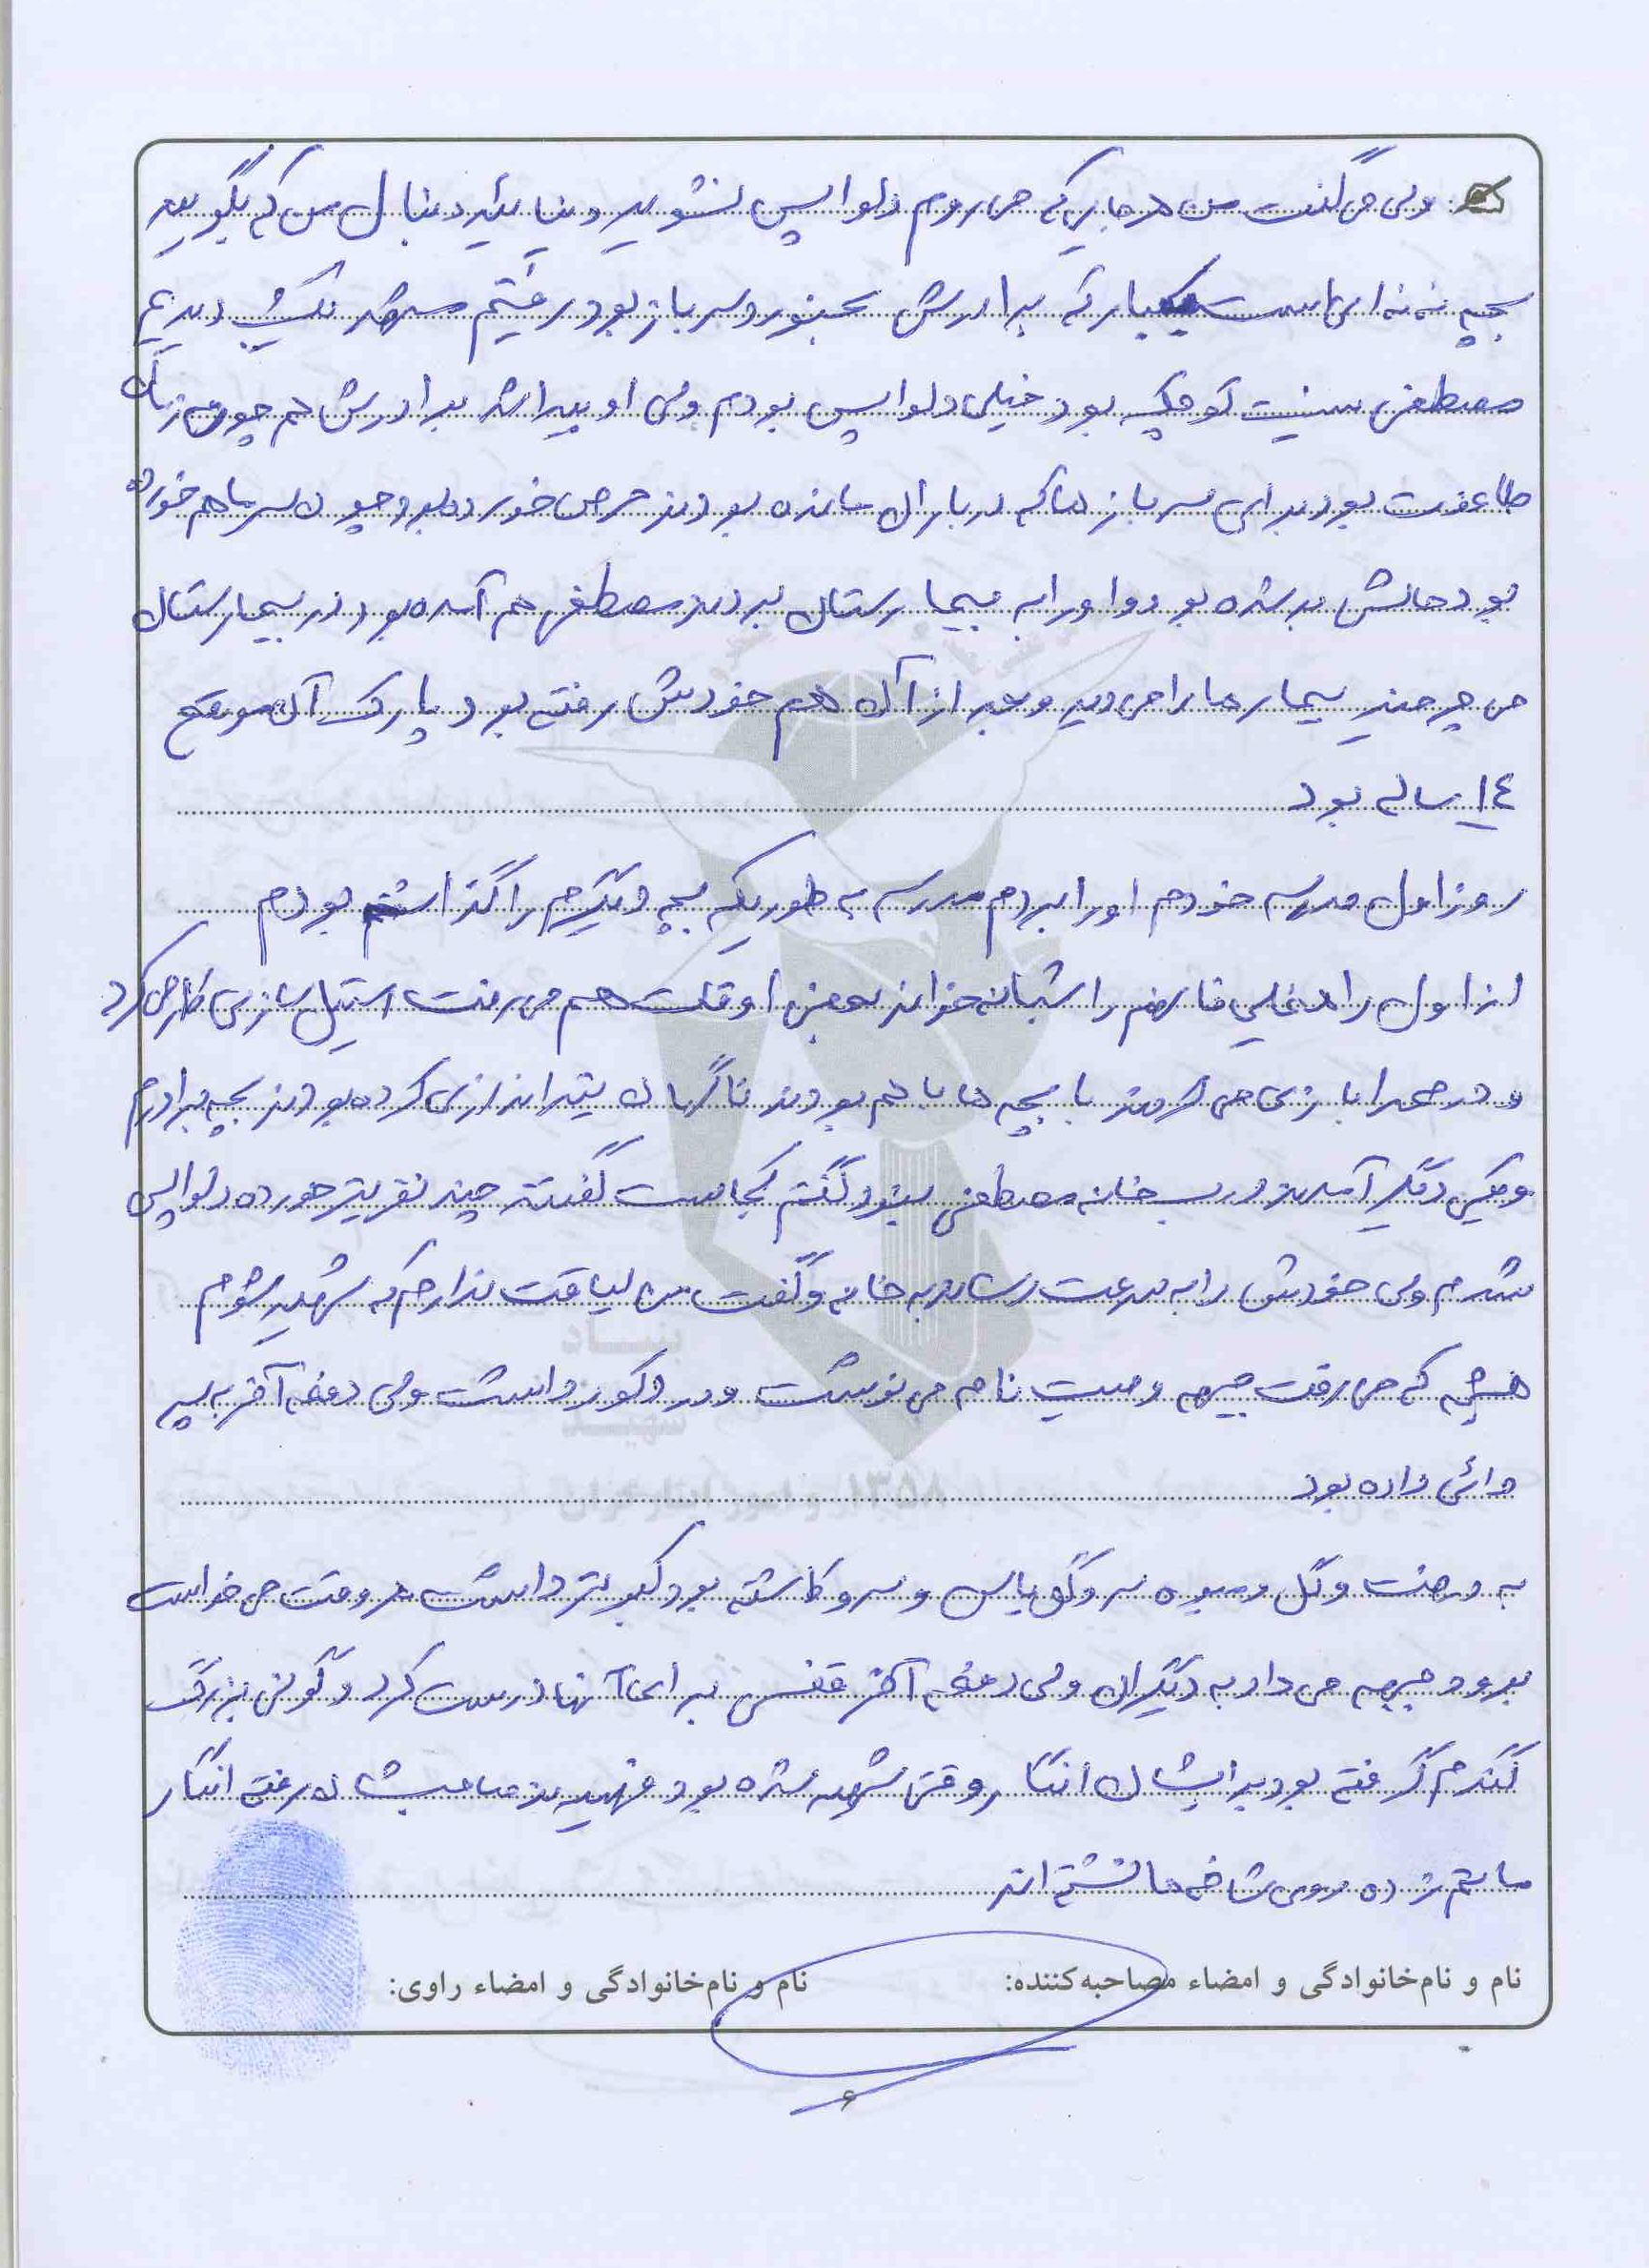 ولی می گفت من هر جایی که می روم دلواپس نشوید و نیائید دنبال من که بگویید
بچه ننه ای است یکبار که برادرش بجنورد سرباز بود رفتیم مشهد تک دیدیم
مصطفی نیست کوچک بود خیلی دلواپس بودم ولی او پیدا شد برادرش هم چون زمان
طاغوت بود برای سربازها که در باران مانده بودند حرص خورده بود و چون سرما هم خورده
بود حالش بد شده بود و او را به بیمارستان بردند مصطفی هم آمده بود در بیمارستان
می چرخید بیمارها را می دید و بعد از آن هم خودش رفته بود پارک آن موقع
١٤ ساله بود
روز اول مدرسه خودم او را بردم مدرسه به طوریکه بچه دیگرم را گذاشتم بودم
از اول راهنمایی را شبانه خواند بعضی اوقات هم می رفت استیل سازی کار می کرد
و در صحرا بازی می کردند با بچه ها با هم بودند ناگهان تیراندازی کرده بودند بچه برادرم
و یکی دیگر آمدند درب خانه مصطفی نبود گفتم کجاست گفتند چند نفر تیر خورده دلواپس
شدم ولی خودش را به سرعت رساند به خانه و گفت من لیاقت ندارم که شهید شوم
همیشه که می رفت جبهه وصیت نامه می نوشت و در دکور داشت ولی دفعه آخر به پسر
دائی داده بود
به درخت و گل و میوه سرو گل یاس و سرو کاشته بود کبوتر داشت هر وقت می خواست
برود جبهه می داد به دیگران ولی دفعه آخر قفسی برای آنها درست کرد و گونی بزرگ
گندم گرفته بود برایشان انگار وقتی شهید شده بود فهمیدند صاحبشان رفته انگار
ماتم زده روی شاخه ها نشسته اند
نام و نام‌خانوادگی و امضاء مصاحبه‌کننده: نام و نام‌خانوادگی و امضاء راوی:
۶